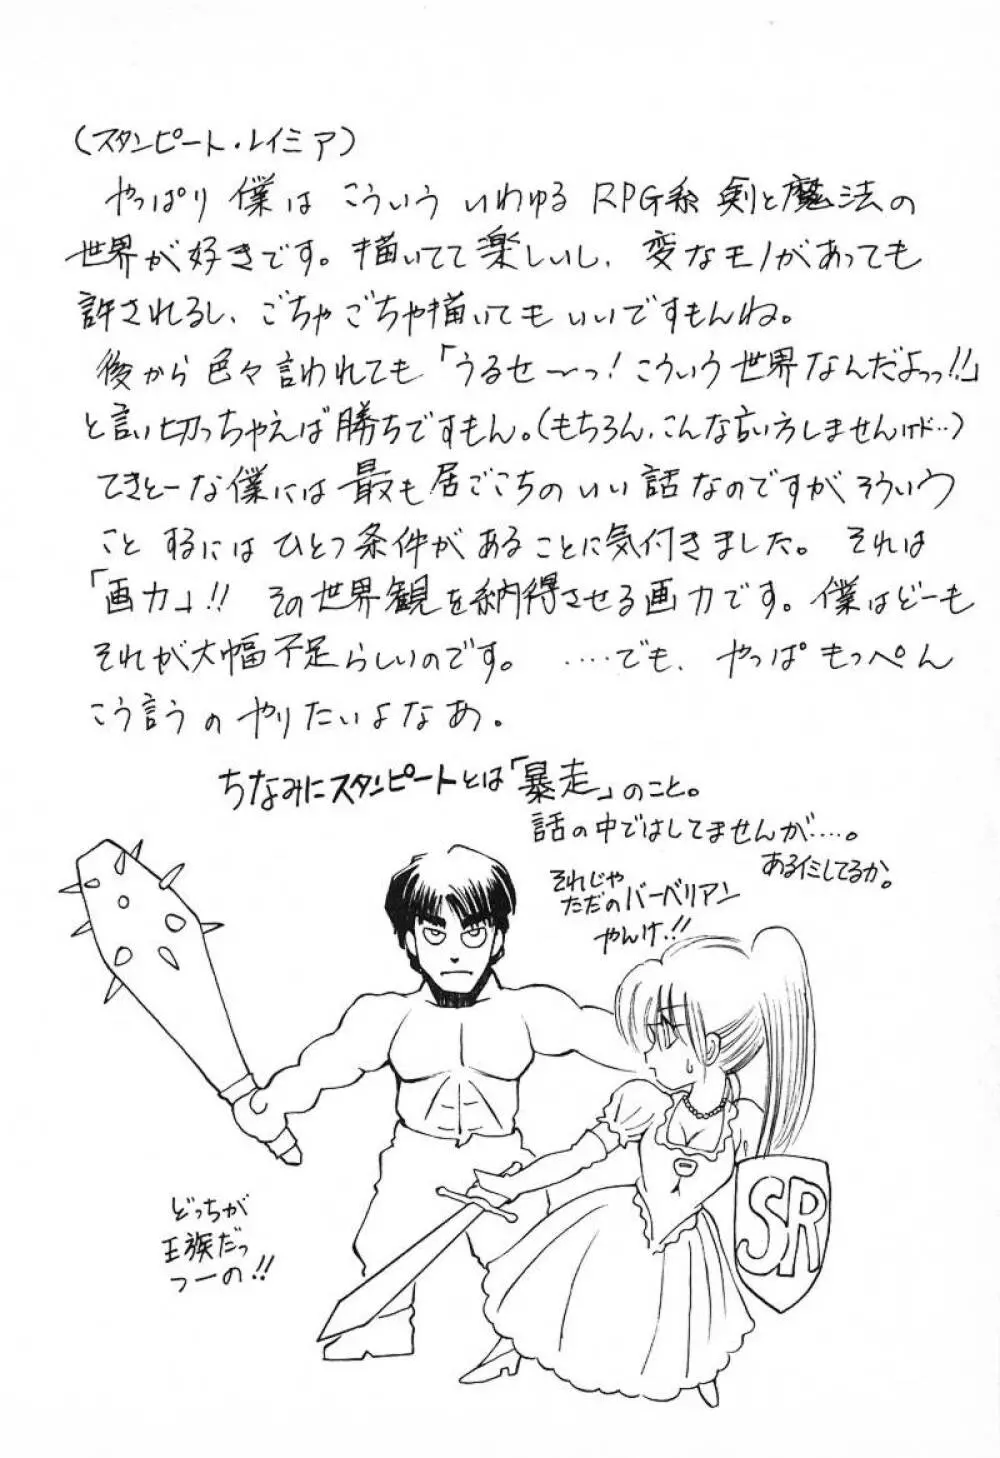 (スタンピート・レイミア)
やっぱり僕はこういういわゆるRPG系剣と魔法の
世界が好きです。描いてて楽しいし、変なモノがあっても
許されるし、ごちゃごちゃ描いてもいいですもんね。
後から色々言われても「うるせ〜っ!こういう世界なんだよっっ!!」
と言い切っちゃえば勝ちですもん。(もちろん、こんな言い方しませんけド‥)
てきとーな僕には最も居ごこちのいい話なのですがそういう
ことするにはひとつ条件があることに気付きました。それは
「画力」!!その世界観を納得させる画力です。僕はどーも
それが大幅不足らしいのです。‥‥でも、やっぱもっぺん
こう言うのやりたいよなあ。
ちなみにスタンピートとは「暴走」のこと。
話の中ではしてませんが‥‥。
ある意味してるか。
それじゃ
ただのバーベリアン
やんけ!!
どっちが
王族だっ
つーの!!
SR